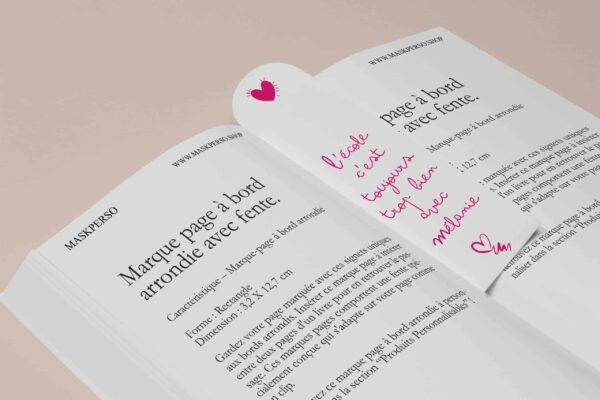 MASKPERSO
WWW.MASKPERSO.SHOP
Marque page à bord
arrondie avec fente.
Caractéristique – Marque-page à bord arrondie
Forme : Rectangle
Dimension : 3,2 X 12,7 cm
Gardez votre page marquée avec ces signets uniques
aux bords arrondis. Insérer ce marque page à insérer
entre deux pages d'un livre pour en retrouver le pas-
sage. Ces marques pages comportent une fente spé-
cialement conçue qui s'adapte sur votre page comme
un clip.
ce marque page à bord arrondie à person-
dans la section "Produits Personnalisables" !
l'école
c'est
toujours
trop bien
avec
mélanie
WWW.MASKPERSO.SHOP
page à bord
avec fente.
Marque-page à bord arrondie
: 12,7 cm
marquée avec ces signets uniques
Insérer ce marque page à insérer
d'un livre pour en retrouver le pas-
pages comportent une fente spé-
qui s'adapte sur votre page comme
ce marque page à bord arrondie à person-
naliser dans la section "Produits Personnalisables" !